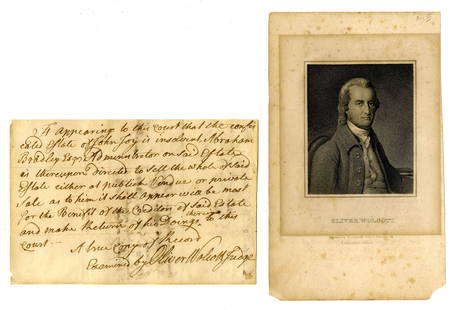 It appearing to this Court that the confis
cated Estate of John Joy is insolvent, Abraham
Bradley Esqr Administrator on Said Estate
is thereupon directed to Sell the whole of Said
Estate either at publick Vendue or private
Sale as to him it Shall appear will be most
for the Benefit of the Creditors of Said Estate
and make Return of his Doings thereon to this
Court
A true Copy of Record
Examined by Oliver Wolcott Judge
OLIVER WOLCOTT